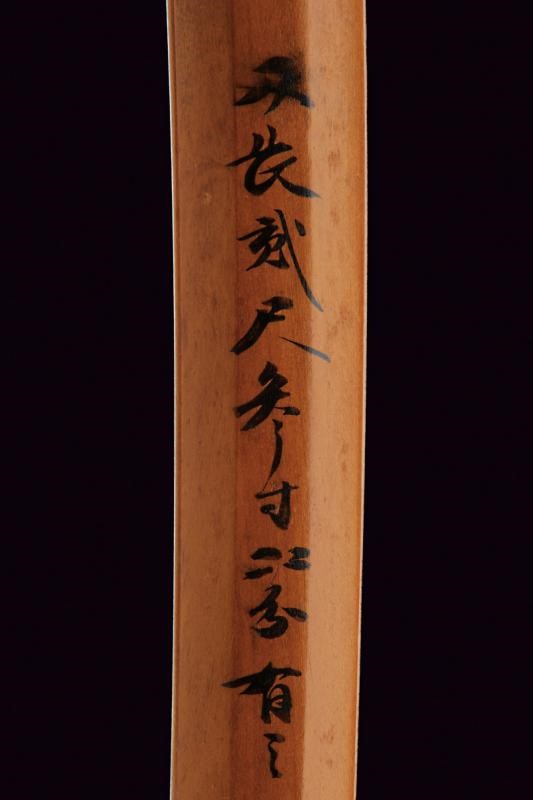 刃長貳尺参寸二分有之